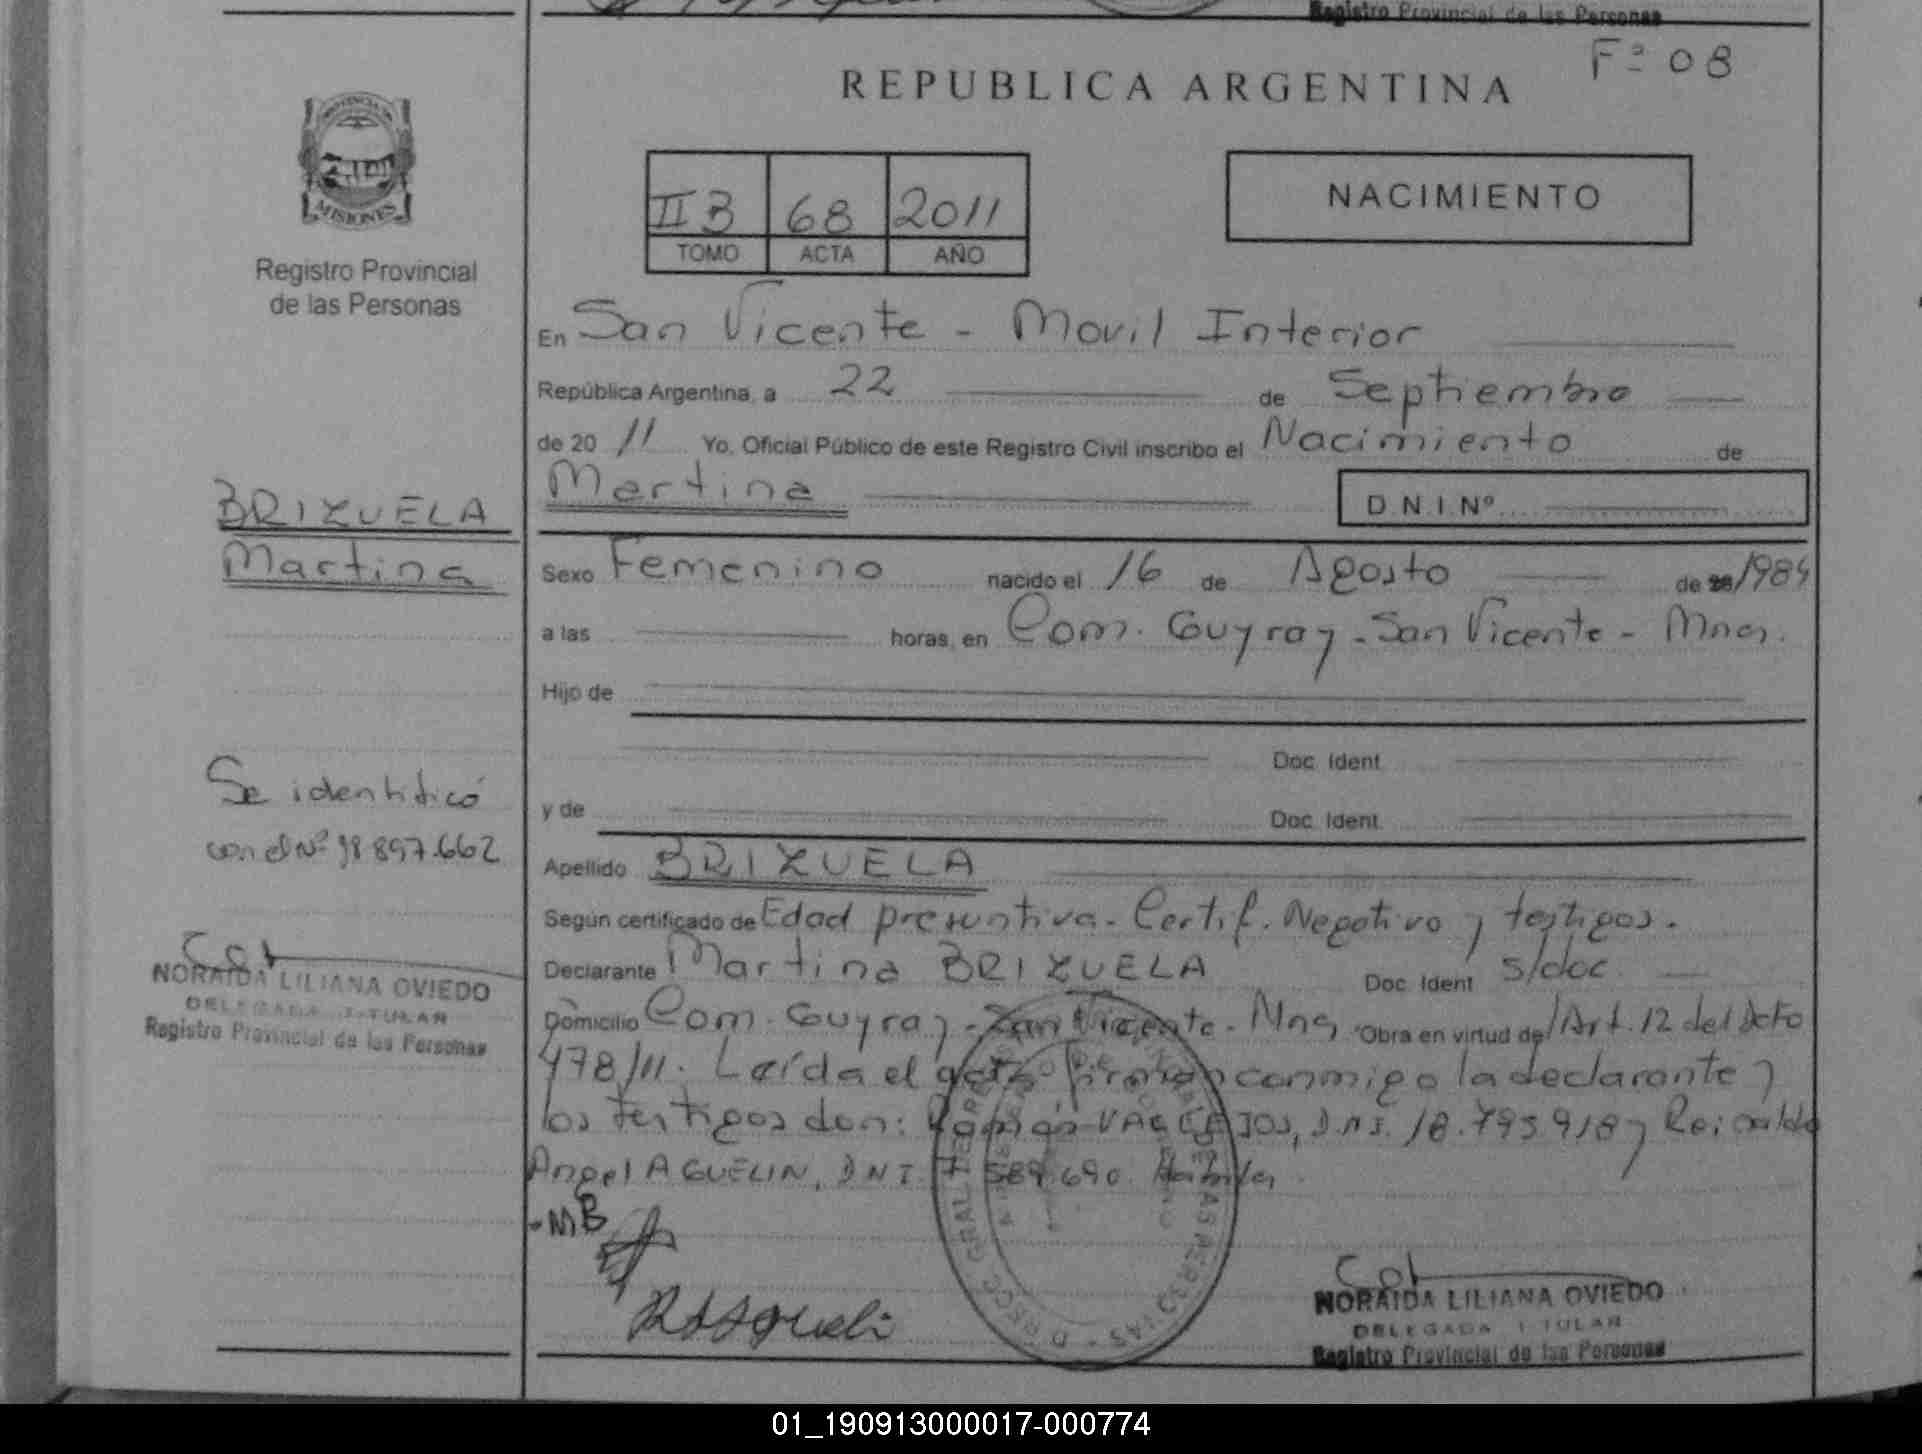 Registro Provincial de las Personas
Fº 08
REPUBLICA ARGENTINA
MISIONES
Registro Provincial
de las Personas
II B 68 2011
TOMO ACTA AÑO
NACIMIENTO
En San Vicente - Movil Interior
República Argentina, a 22 de Septiembre
de 20 11 Yo, Oficial Público de este Registro Civil inscribo el Nacimiento de
Martina
D.N.I.Nº
BRIZUELA
Martina
Sexo Femenino nacido el 16 de Agosto de 1984
a las horas, en Com. Guyray - San Vicente - Mnes.
Hijo de
Doc. Ident.
y de Doc. Ident.
Se identificó
con el Nº 18.897.662
NORAIDA LILIANA OVIEDO
DELEGADA TITULAR
Registro Provincial de las Personas
Apellido BRIZUELA
Según certificado de Edad presuntiva - Certif. Negativo y testigos.
Declarante Martina BRIZUELA Doc. Ident. s/doc.
Domicilio Com. Guyray - San Vicente - Mnes Obra en virtud del Art. 12 del Dcto
478/11. Leída el acta firman conmigo la declarante y
los testigos don: Ramón VALLEJOS, D.N.I. 18.795.918 y Reinaldo
Angel AGUELIN, D.N.I. 7.589.690.
MB
NORAIDA LILIANA OVIEDO
DELEGADA TITULAR
Registro Provincial de las Personas
01_190913000017-000774